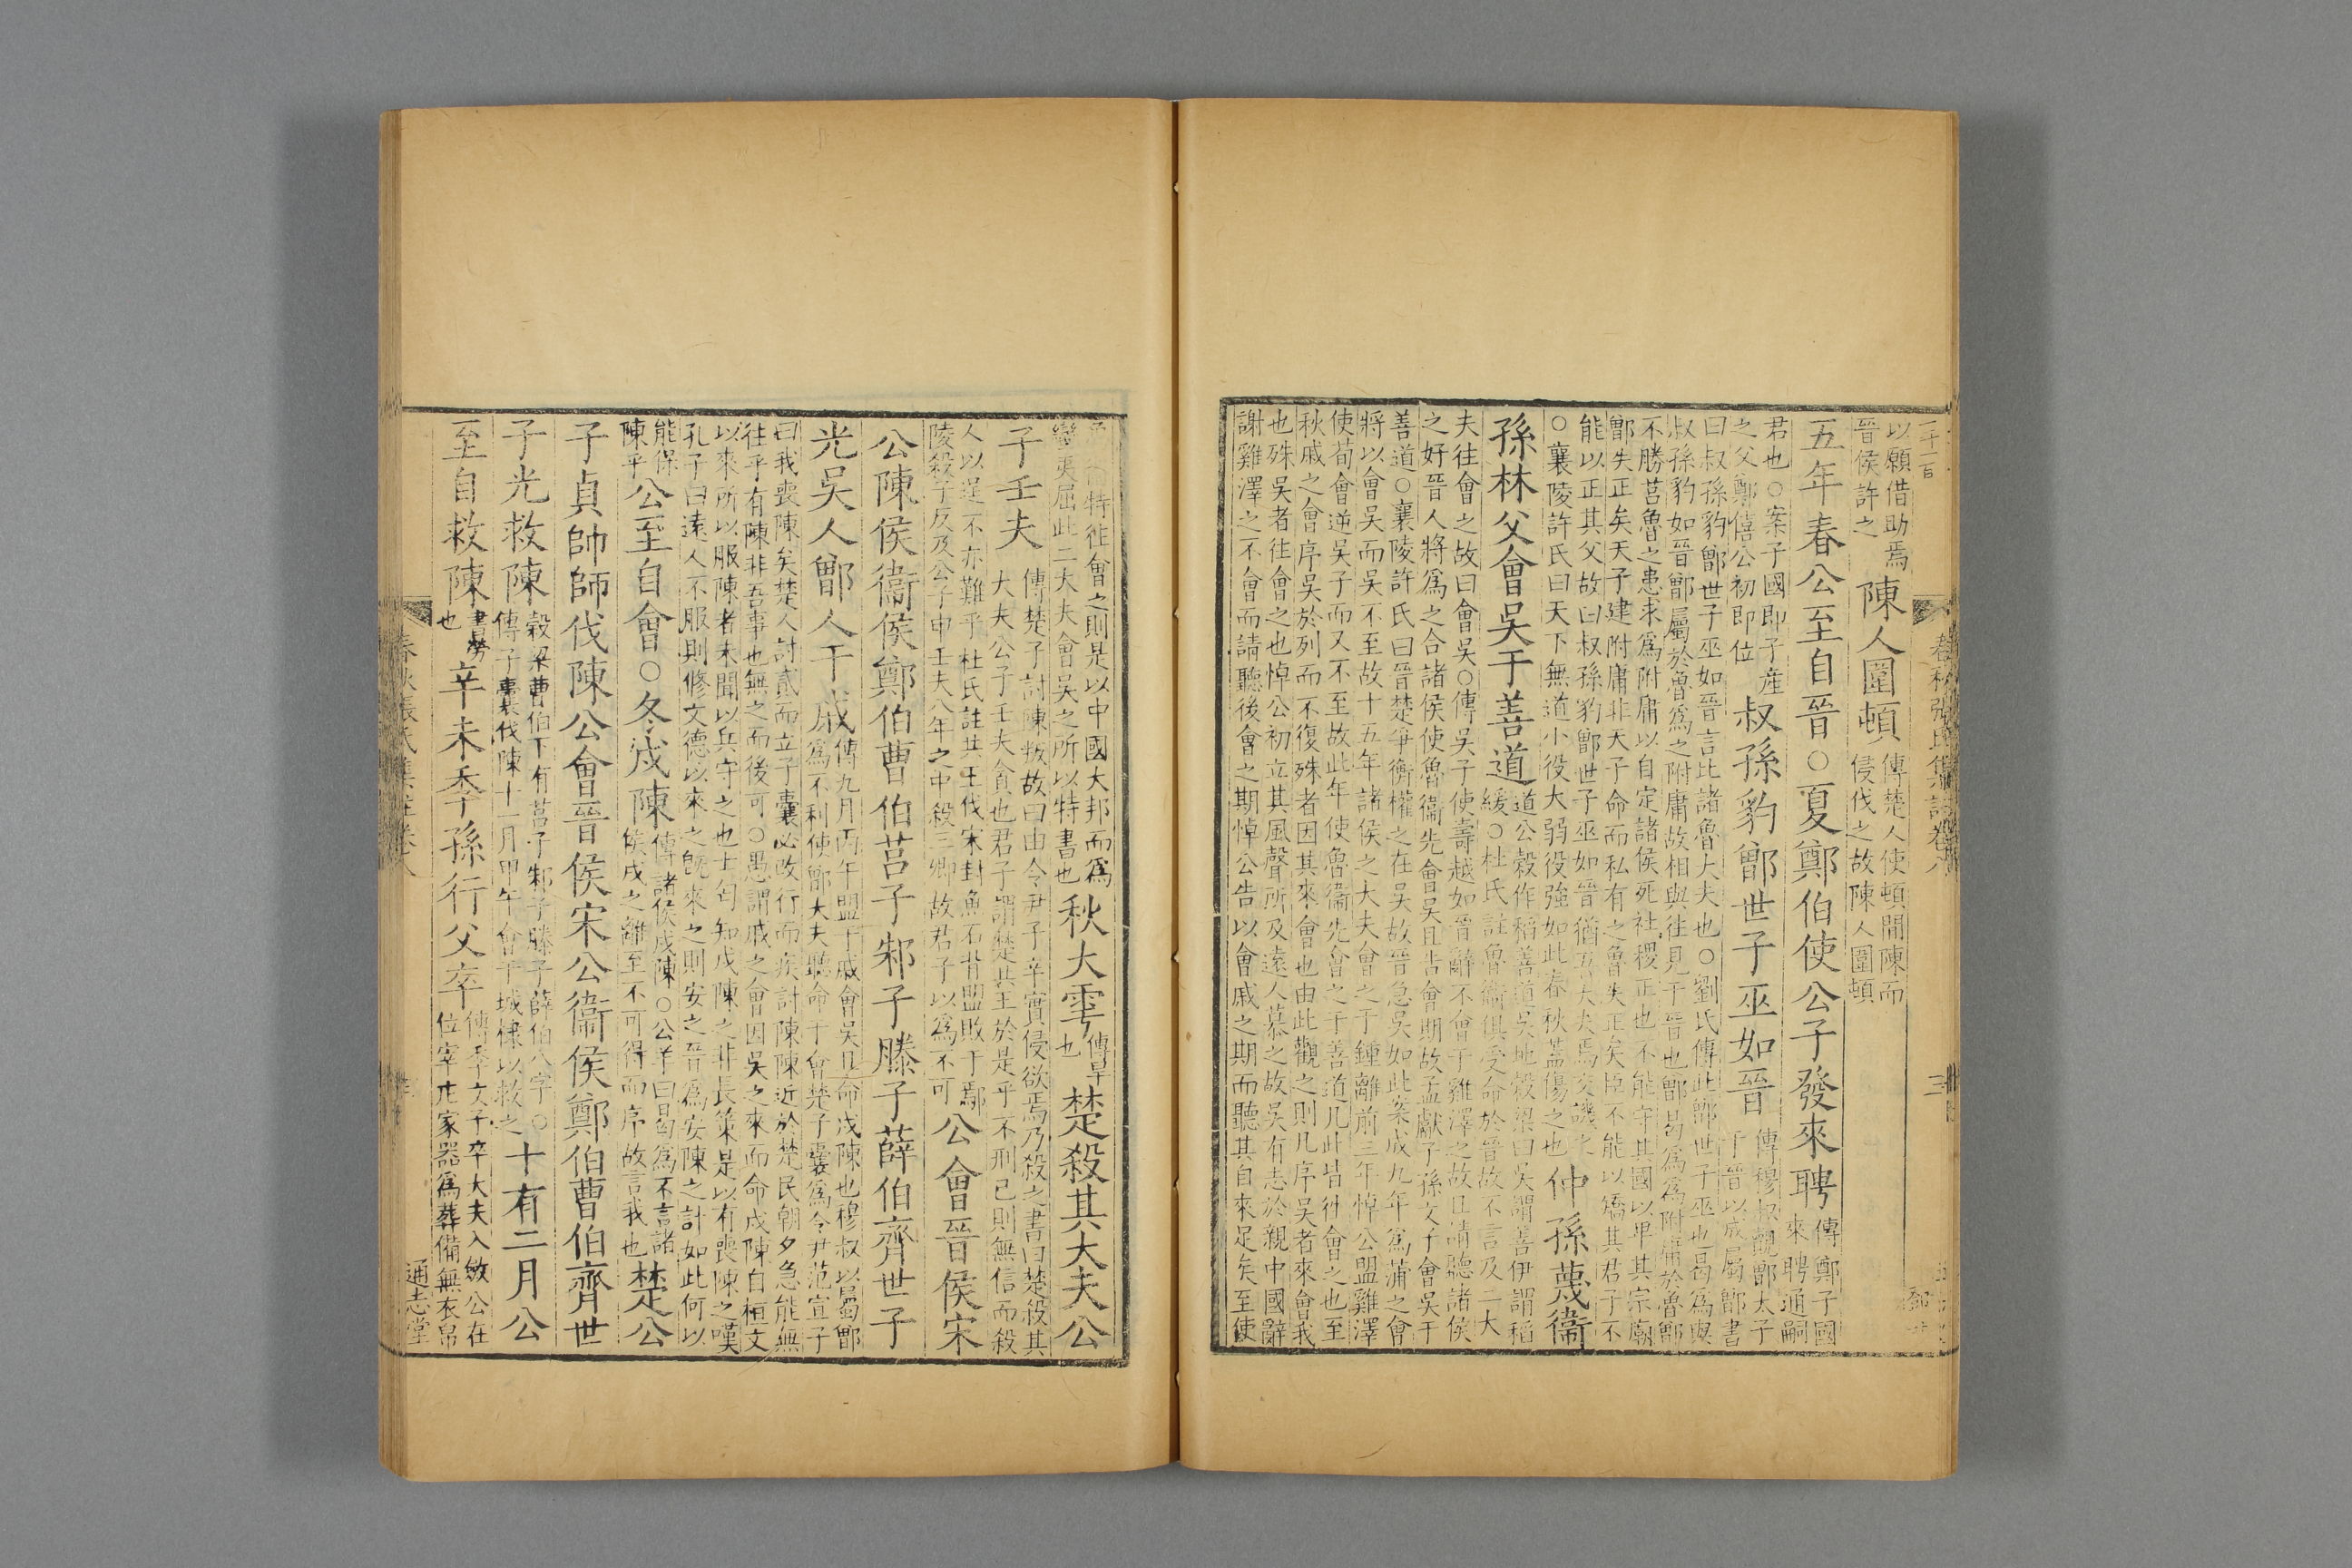 以願借助焉
晉侯許之
陳人圍頓
傳楚人使頓間陳而
侵伐之故陳人圍頓
五年春公至自晉○夏鄭伯使公子發來聘
傳鄭子國
來聘通嗣
君也○案子國即子產
之父鄭僖公初即位
叔孫豹鄫世子巫如晉
傳穆叔覿鄫太子
于晉以成屬鄫書
曰叔孫豹鄫世子巫如晉言比諸魯大夫也○劉氏傳此鄫世子巫也曷爲與
叔孫豹如晉鄫屬於魯爲之附庸故相與往見于晉也鄫曷爲爲附庸於魯鄫
不勝莒魯之患求爲附庸以自定諸侯死社稷正也不能守其國以卑其宗廟
鄫失正矣天子建附庸非天子命而私有之魯失正矣臣不能以矯其君子不
能以正其父故曰叔孫豹鄫世子巫如晉猶吾大夫焉交譏之
○襄陵許氏曰天下無道小役大弱役強如此春秋蓋傷之也
仲孫蔑衞
孫林父會吳于善道
道公穀作稻善道吳地穀梁曰吳謂善伊謂稻
緩○杜氏註魯衞俱受命於晉故不言及二大
夫往會之故曰會吳○傳吳子使壽越如晉辭不會于雞澤之故且請聽諸侯
之好晉人將爲之合諸侯使魯衞先會吳且告會期故孟獻子孫文子會吳于
善道○襄陵許氏曰晉楚爭衡權之在吳故晉急吳如此案成九年爲蒲之會
將以會吳而吳不至故十五年諸侯之大夫會之于鍾離前三年悼公盟雞澤
使荀會逆吳子而又不至故此年使魯衞先會之于善道凡此皆往會之也至
秋戚之會序吳於列而不復殊者因其來會也由此觀之則凡序吳者來會我
也殊吳者往會之也悼公初立其風聲所及遠人慕之故吳有志於親中國辭
謝雞澤之不會而請聽後會之期悼公告以會戚之期而聽其自來足矣至使
特往會之則是以中國大邦而爲
蠻夷屈此二大夫會吳之所以特書也
秋大雩
傳旱
也
楚殺其大夫公
子壬夫
傳楚子討陳叛故曰由令尹子辛實侵欲焉乃殺之書曰楚殺其
大夫公子壬夫貪也君子謂楚共王於是乎不刑己則無信而殺
人以逞不亦難乎杜氏註共王伐宋封魚石背盟敗于鄢
陵殺子反及公子申壬夫八年之中殺三卿故君子以爲不可
公會晉侯宋
公陳侯衞侯鄭伯曹伯莒子邾子滕子薛伯齊世子
光吳人鄫人于戚
傳九月丙午盟于戚會吳且命戍陳也穆叔以屬鄫
爲不利使鄫大夫聽命于會楚子囊爲令尹范宣子
曰我喪陳矣楚人討貳而立子囊必改行而疾討陳陳近於楚民朝夕急能無
往乎有陳非吾事也無之而後可○愚謂戚之會因吳之來而命戍陳自桓文
以來所以服陳者未聞以兵守之也士匄知戍陳之非長策是以有喪陳之嘆
孔子曰遠人不服則修文德以來之既來之則安之晉爲安陳之計如此何以
能保
陳乎
公至自會○冬戍陳
傳諸侯戍陳○公羊曰曷爲不言諸
侯戍之離至不可得而序故言我也
楚公
子貞帥師伐陳公會晉侯宋公衞侯鄭伯曹伯齊世
子光救陳
穀梁曹伯下有莒子邾子滕子薛伯八字○
傳子囊伐陳十一月甲午會于城棣以救之
十有二月公
至自救陳
書勞
也
辛未季孫行父卒
傳季文子卒大夫入斂公在
位宰庀家器爲葬備無衣帛
通志堂